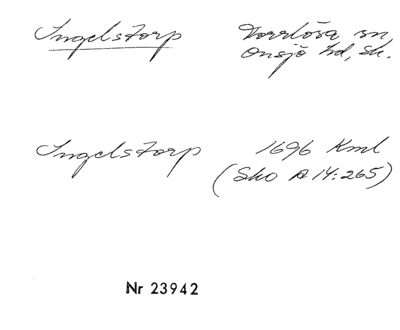 Ingelstorp Norrlösa sn,
Onsjö hd, Sk.
Ingelstorp 1696 Kml
(Sko A 14:265)
Nr 23942